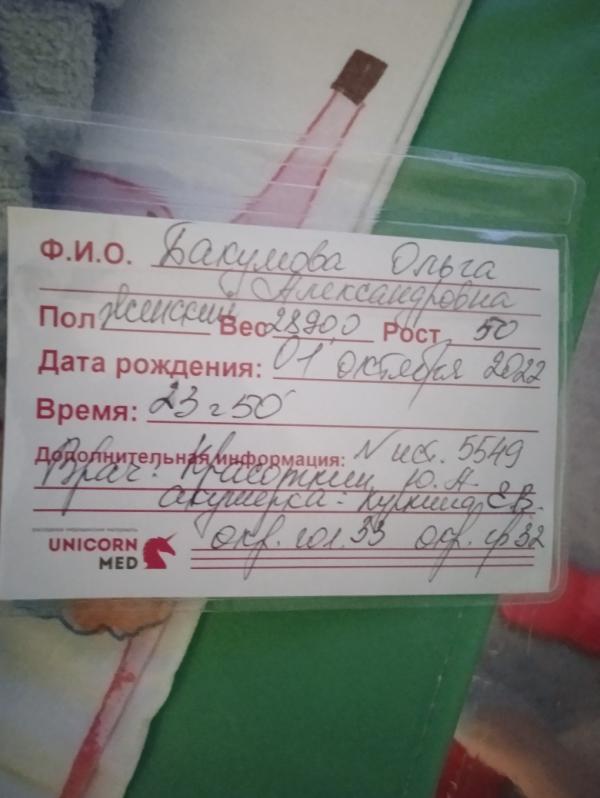 Ф.И.О. Бакумова Ольга
Александровна
Пол женский Вес 2890,0 Рост 50
Дата рождения: 01 октября 2022
Время: 23 ч 50
Дополнительная информация: N ист. 5549
Врач: Красоткин Ю.А
акушерка: ЕВ.
UNICORN окр. гол. 33 окр. гр 32
MED